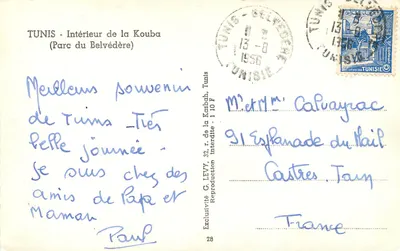 TUNIS - Intérieur de la Kouba
(Parc du Belvédère)
Meilleurs souvenirs
de Tunis - Très
belle journée -
je suis chez des
amis de Papa et
Maman
Paul
Exclusivité G. LEVY, 22, r. de la Kasbah, Tunis
Reproduction interdite - 1 10 F
28
TUNIS - BELVÉDÈRE
13-8
1956
TUNISIE
TUNIS - BELVÉDÈRE
13-8
1956
TUNISIE
TUNISIE
Mr et Mme Calvayrac
91 Esplanade du Mail
Castres. Tarn
France